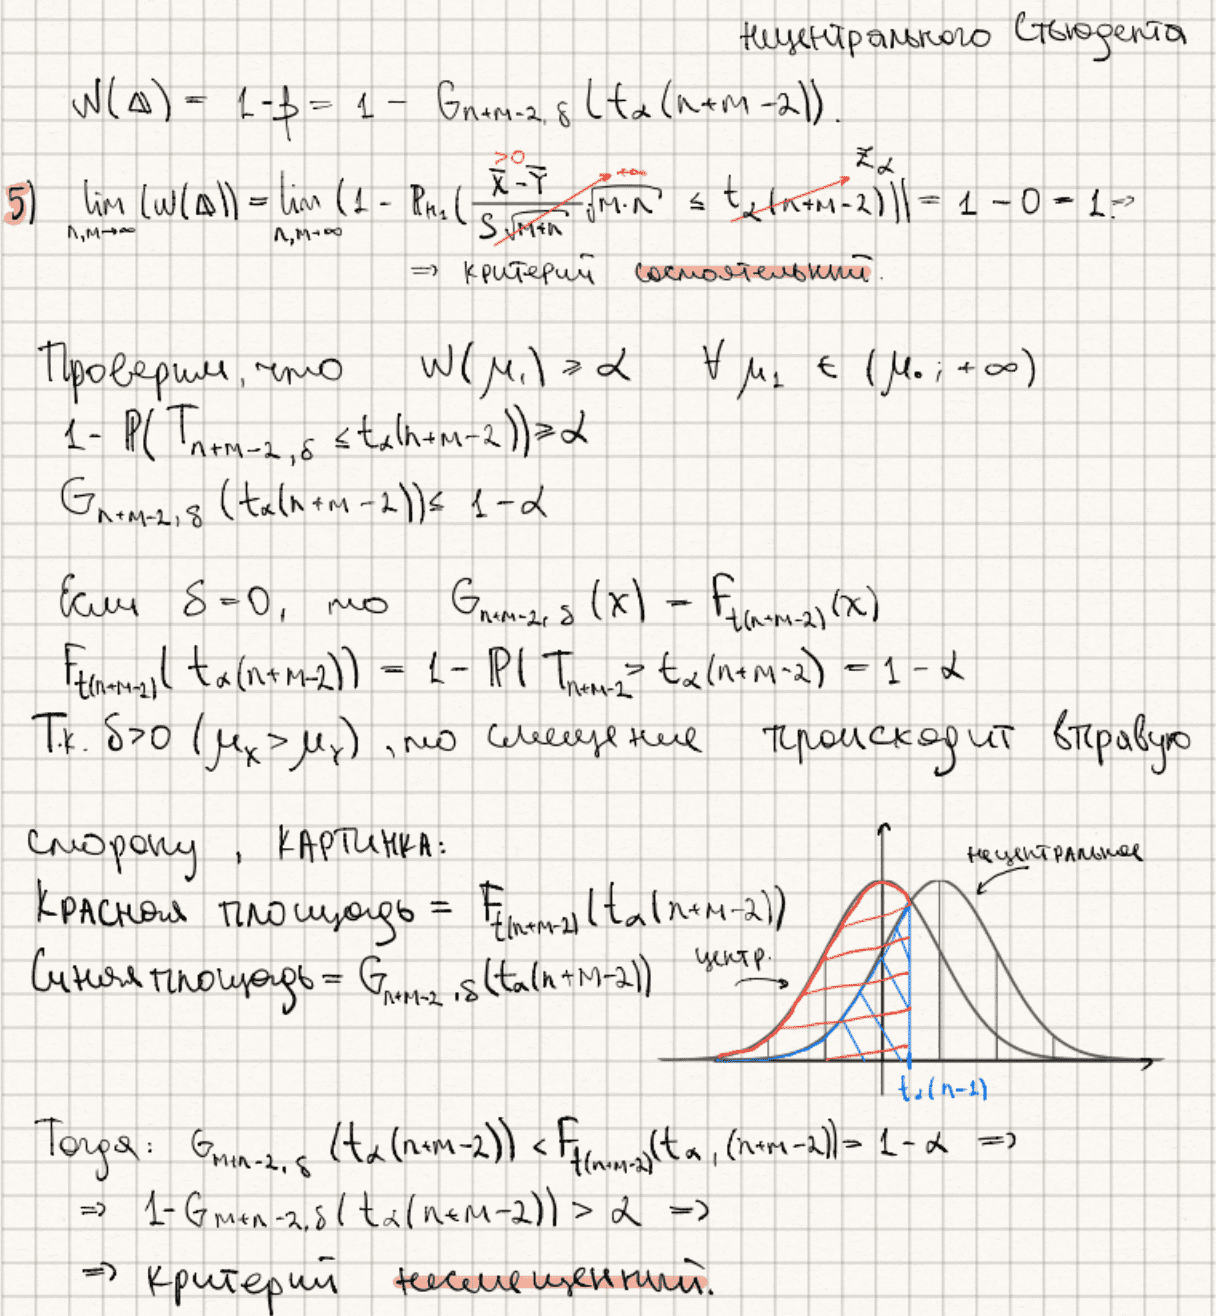 нецентрального Стьюдента
W(Δ) = 1-β = 1 - G_{n+m-2, δ} (t_α (n+m-2)).
5) lim_{n,m→∞} (W(Δ)) = lim_{n,m→∞} (1 - P_{H_1} ( \frac{\overline{X} - \overline{Y}}{S\sqrt{m+n}} \sqrt{m·n} ≤ t_α (n+m-2))) = 1 - 0 = 1 ⇒
>0 +∞ z_α
⇒ критерий состоятельный.
Проверим, что W(μ_1) ≥ α ∀ μ_1 ∈ (μ_0 ; +∞)
1 - P( T_{n+m-2, δ} ≤ t_α(n+m-2)) ≥ α
G_{n+m-2, δ} (t_α(n+m-2)) ≤ 1-α
Если δ=0, то G_{n+m-2, δ} (x) = F_{t(n+m-2)} (x)
F_{t(n+m-2)} ( t_α(n+m-2)) = 1 - P( T_{n+m-2} > t_α(n+m-2) = 1 - α
Т.к. δ>0 (μ_X > μ_Y), то смещение происходит вправую
сторону, КАРТИНКА:
нецентральное
Красная площадь = F_{t(n+m-2)} (t_α(n+m-2))
центр.
Синяя площадь = G_{n+m-2, δ} (t_α(n+m-2))
t_α(n-1)
Тогда: G_{m+n-2, δ} (t_α(n+m-2)) < F_{t(n+m-2)} (t_α, (n+m-2)) = 1 - α ⇒
⇒ 1 - G_{m+n-2, δ} ( t_α(n+m-2)) > α ⇒
⇒ критерий несмещенный.